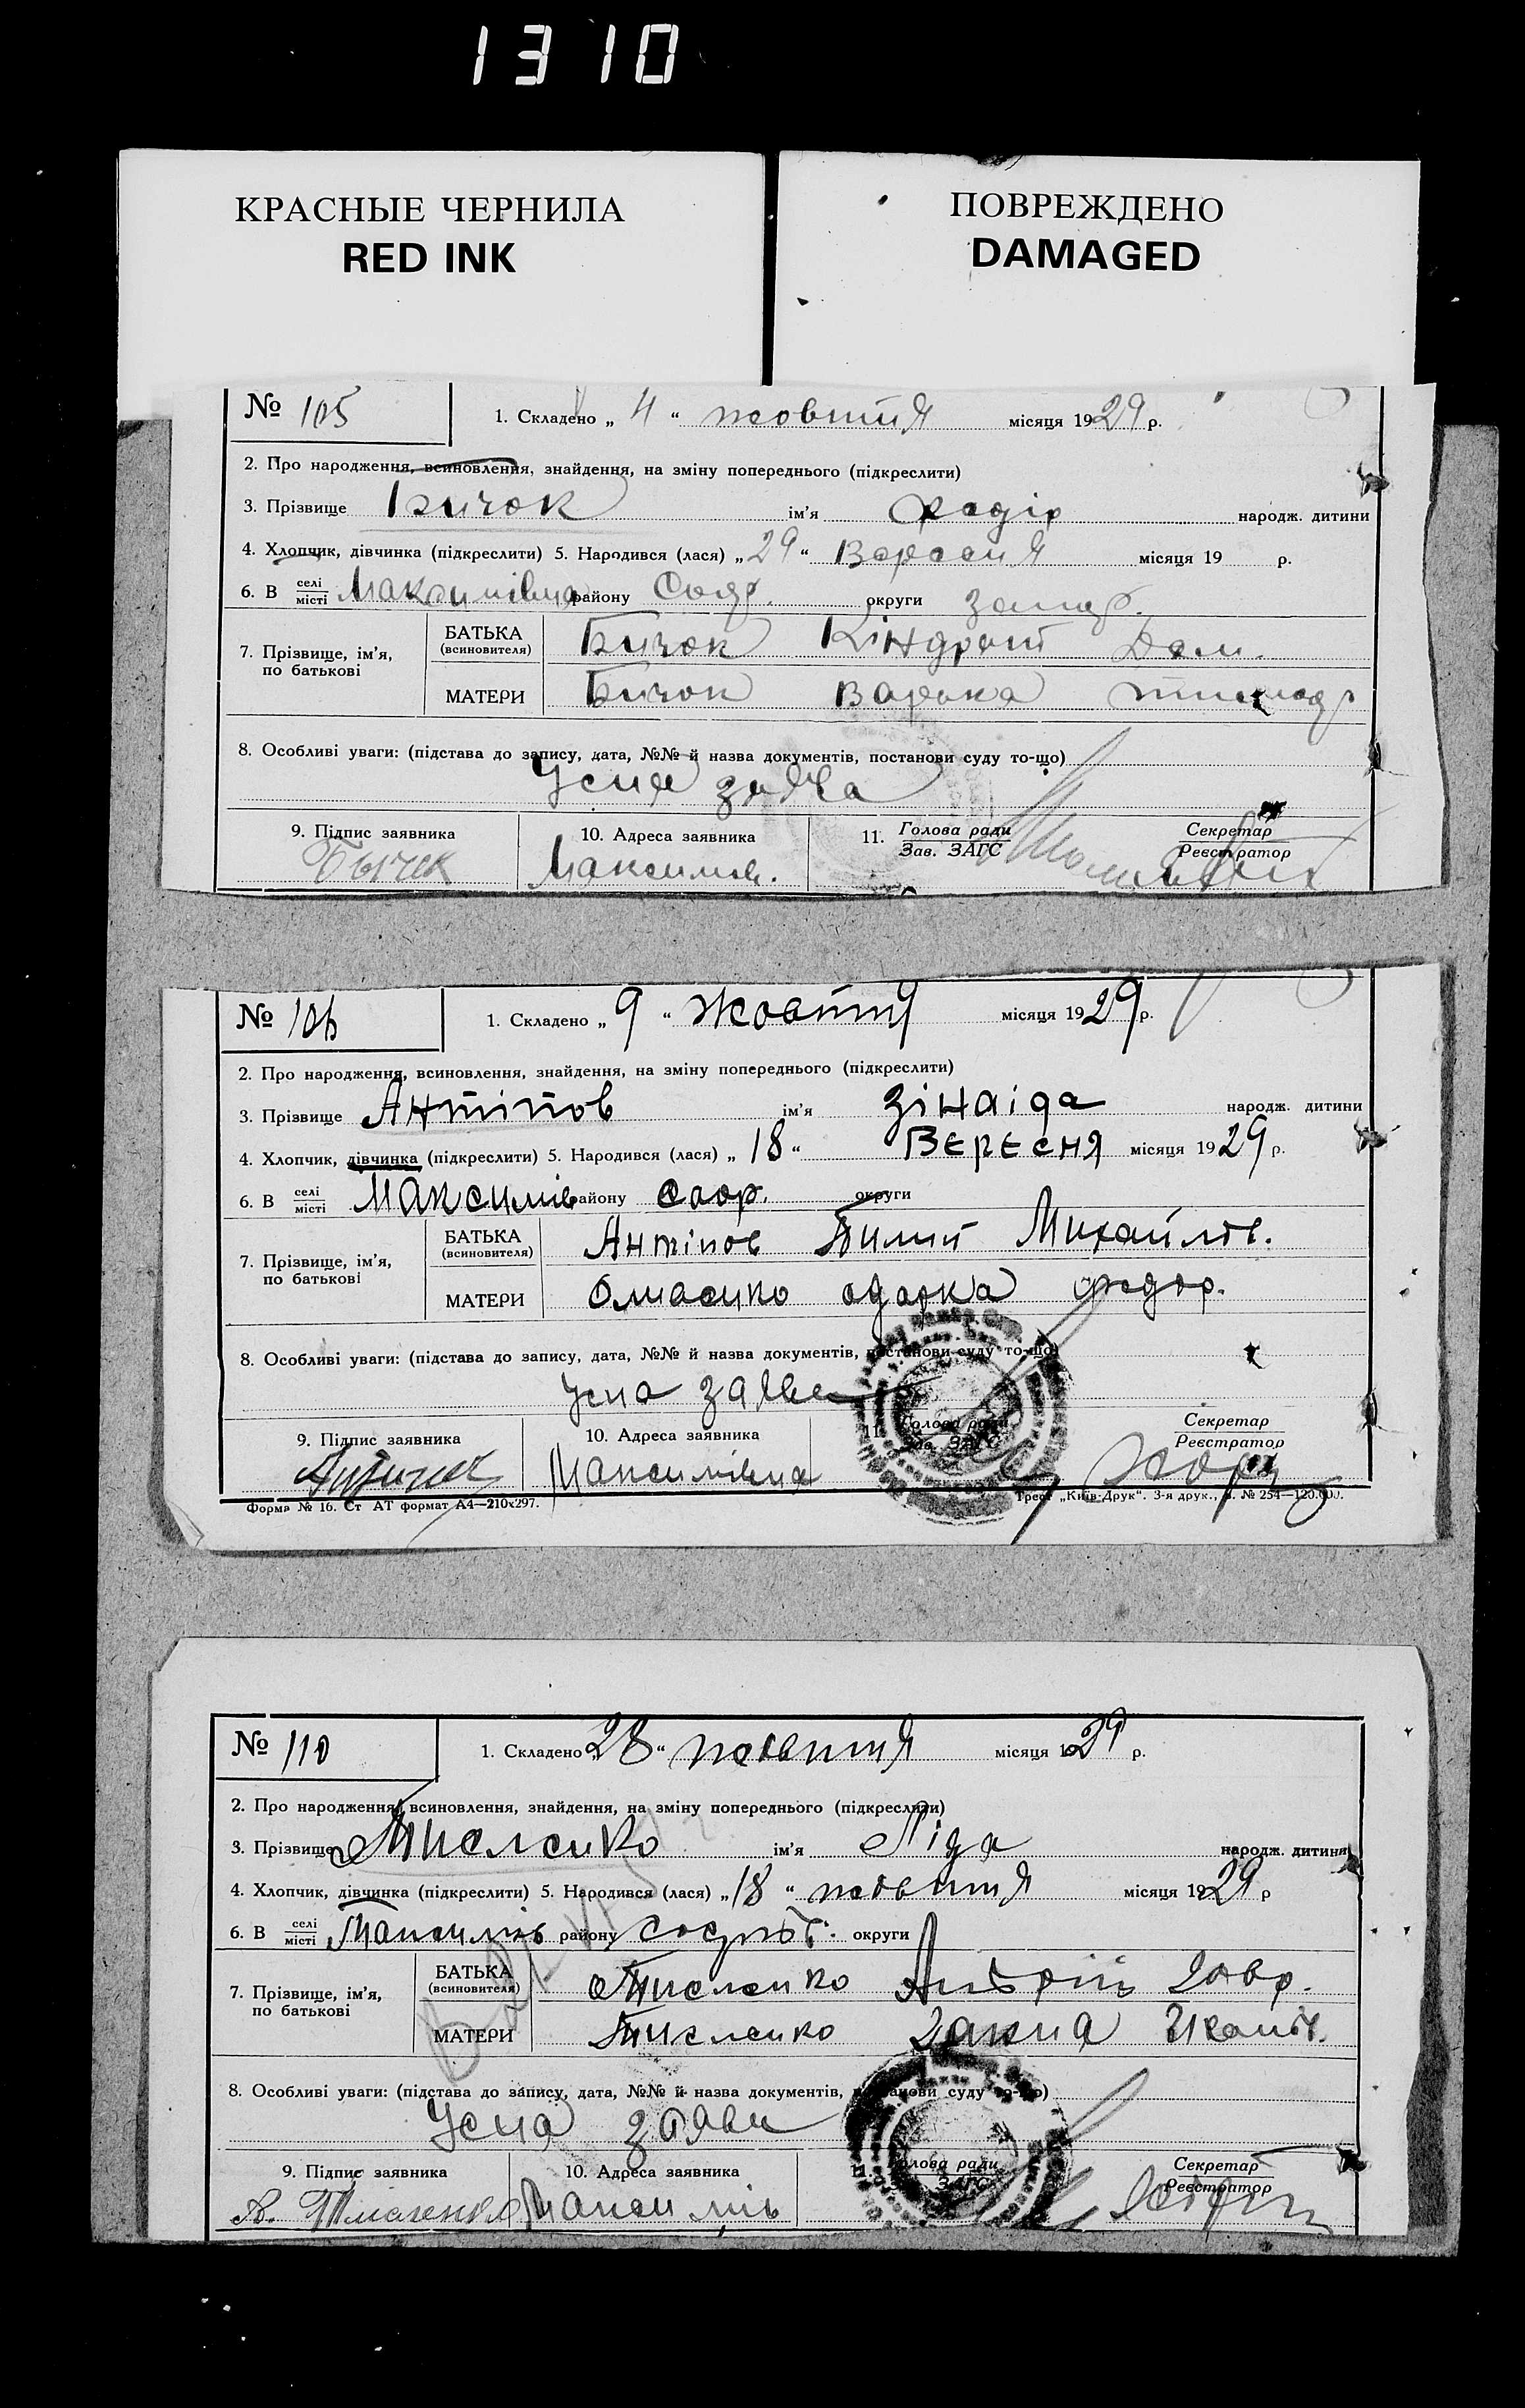 1310
КРАСНЫЕ ЧЕРНИЛА
RED INK
ПОВРЕЖДЕНО
DAMAGED
№ 105 1. Складено „ 4 “ жовтня місяця 1929 р.
2. Про народження, всиновлення, знайдення, на зміну попереднього (підкреслити)
3. Прізвище Бичок ім'я народж. дитини
4. Хлопчик, дівчинка (підкреслити) 5. Народився (лася) „ 29 “ Вересня місяця 19 р.
6. В селі/місті Максимівка району округи
7. Прізвище, ім'я, по батькові
БАТЬКА (всиновителя) Бичок Кіндрат Дем.
МАТЕРИ Бичок Варка
8. Особливі уваги: (підстава до запису, дата, №№ й назва документів, постанови суду то-що)
Усна заява
9. Підпис заявника 10. Адреса заявника 11. Голова ради/Зав. ЗАГС Секретар/Реєстратор
Бычек Максимів.
№ 106 1. Складено „ 9 “ Жовтня місяця 1929 р.
2. Про народження, всиновлення, знайдення, на зміну попереднього (підкреслити)
3. Прізвище Антіпов ім'я Зінаіда народж. дитини
4. Хлопчик, дівчинка (підкреслити) 5. Народився (лася) „ 18 “ Вересня місяця 1929 р.
6. В селі/місті Максимів району округи
7. Прізвище, ім'я, по батькові
БАТЬКА (всиновителя) Антіпов Михайлов.
МАТЕРИ одарка федор.
8. Особливі уваги: (підстава до запису, дата, №№ й назва документів, постанови суду то-що)
Усна заява
9. Підпис заявника 10. Адреса заявника 11. Голова ради/Зав. ЗАГС Секретар/Реєстратор
Максимівка
Форма № 16. Ст АТ формат А4—210х297. Трест „Київ-Друк“. 3-я друк., з. № 254—120.000.
№ 110 1. Складено „ 28 “ жовтня місяця 1929 р.
2. Про народження, всиновлення, знайдення, на зміну попереднього (підкреслити)
3. Прізвище ім'я Ліда народж. дитини
4. Хлопчик, дівчинка (підкреслити) 5. Народився (лася) „ 18 “ жовтня місяця 1929 р
6. В селі/місті Максимів району округи
7. Прізвище, ім'я, по батькові
БАТЬКА (всиновителя) Андрій Лавр.
МАТЕРИ
8. Особливі уваги: (підстава до запису, дата, №№ й назва документів, постанови суду то-що)
Усна заява
9. Підпис заявника 10. Адреса заявника 11. Голова ради/Зав. ЗАГС Секретар/Реєстратор
Максимів